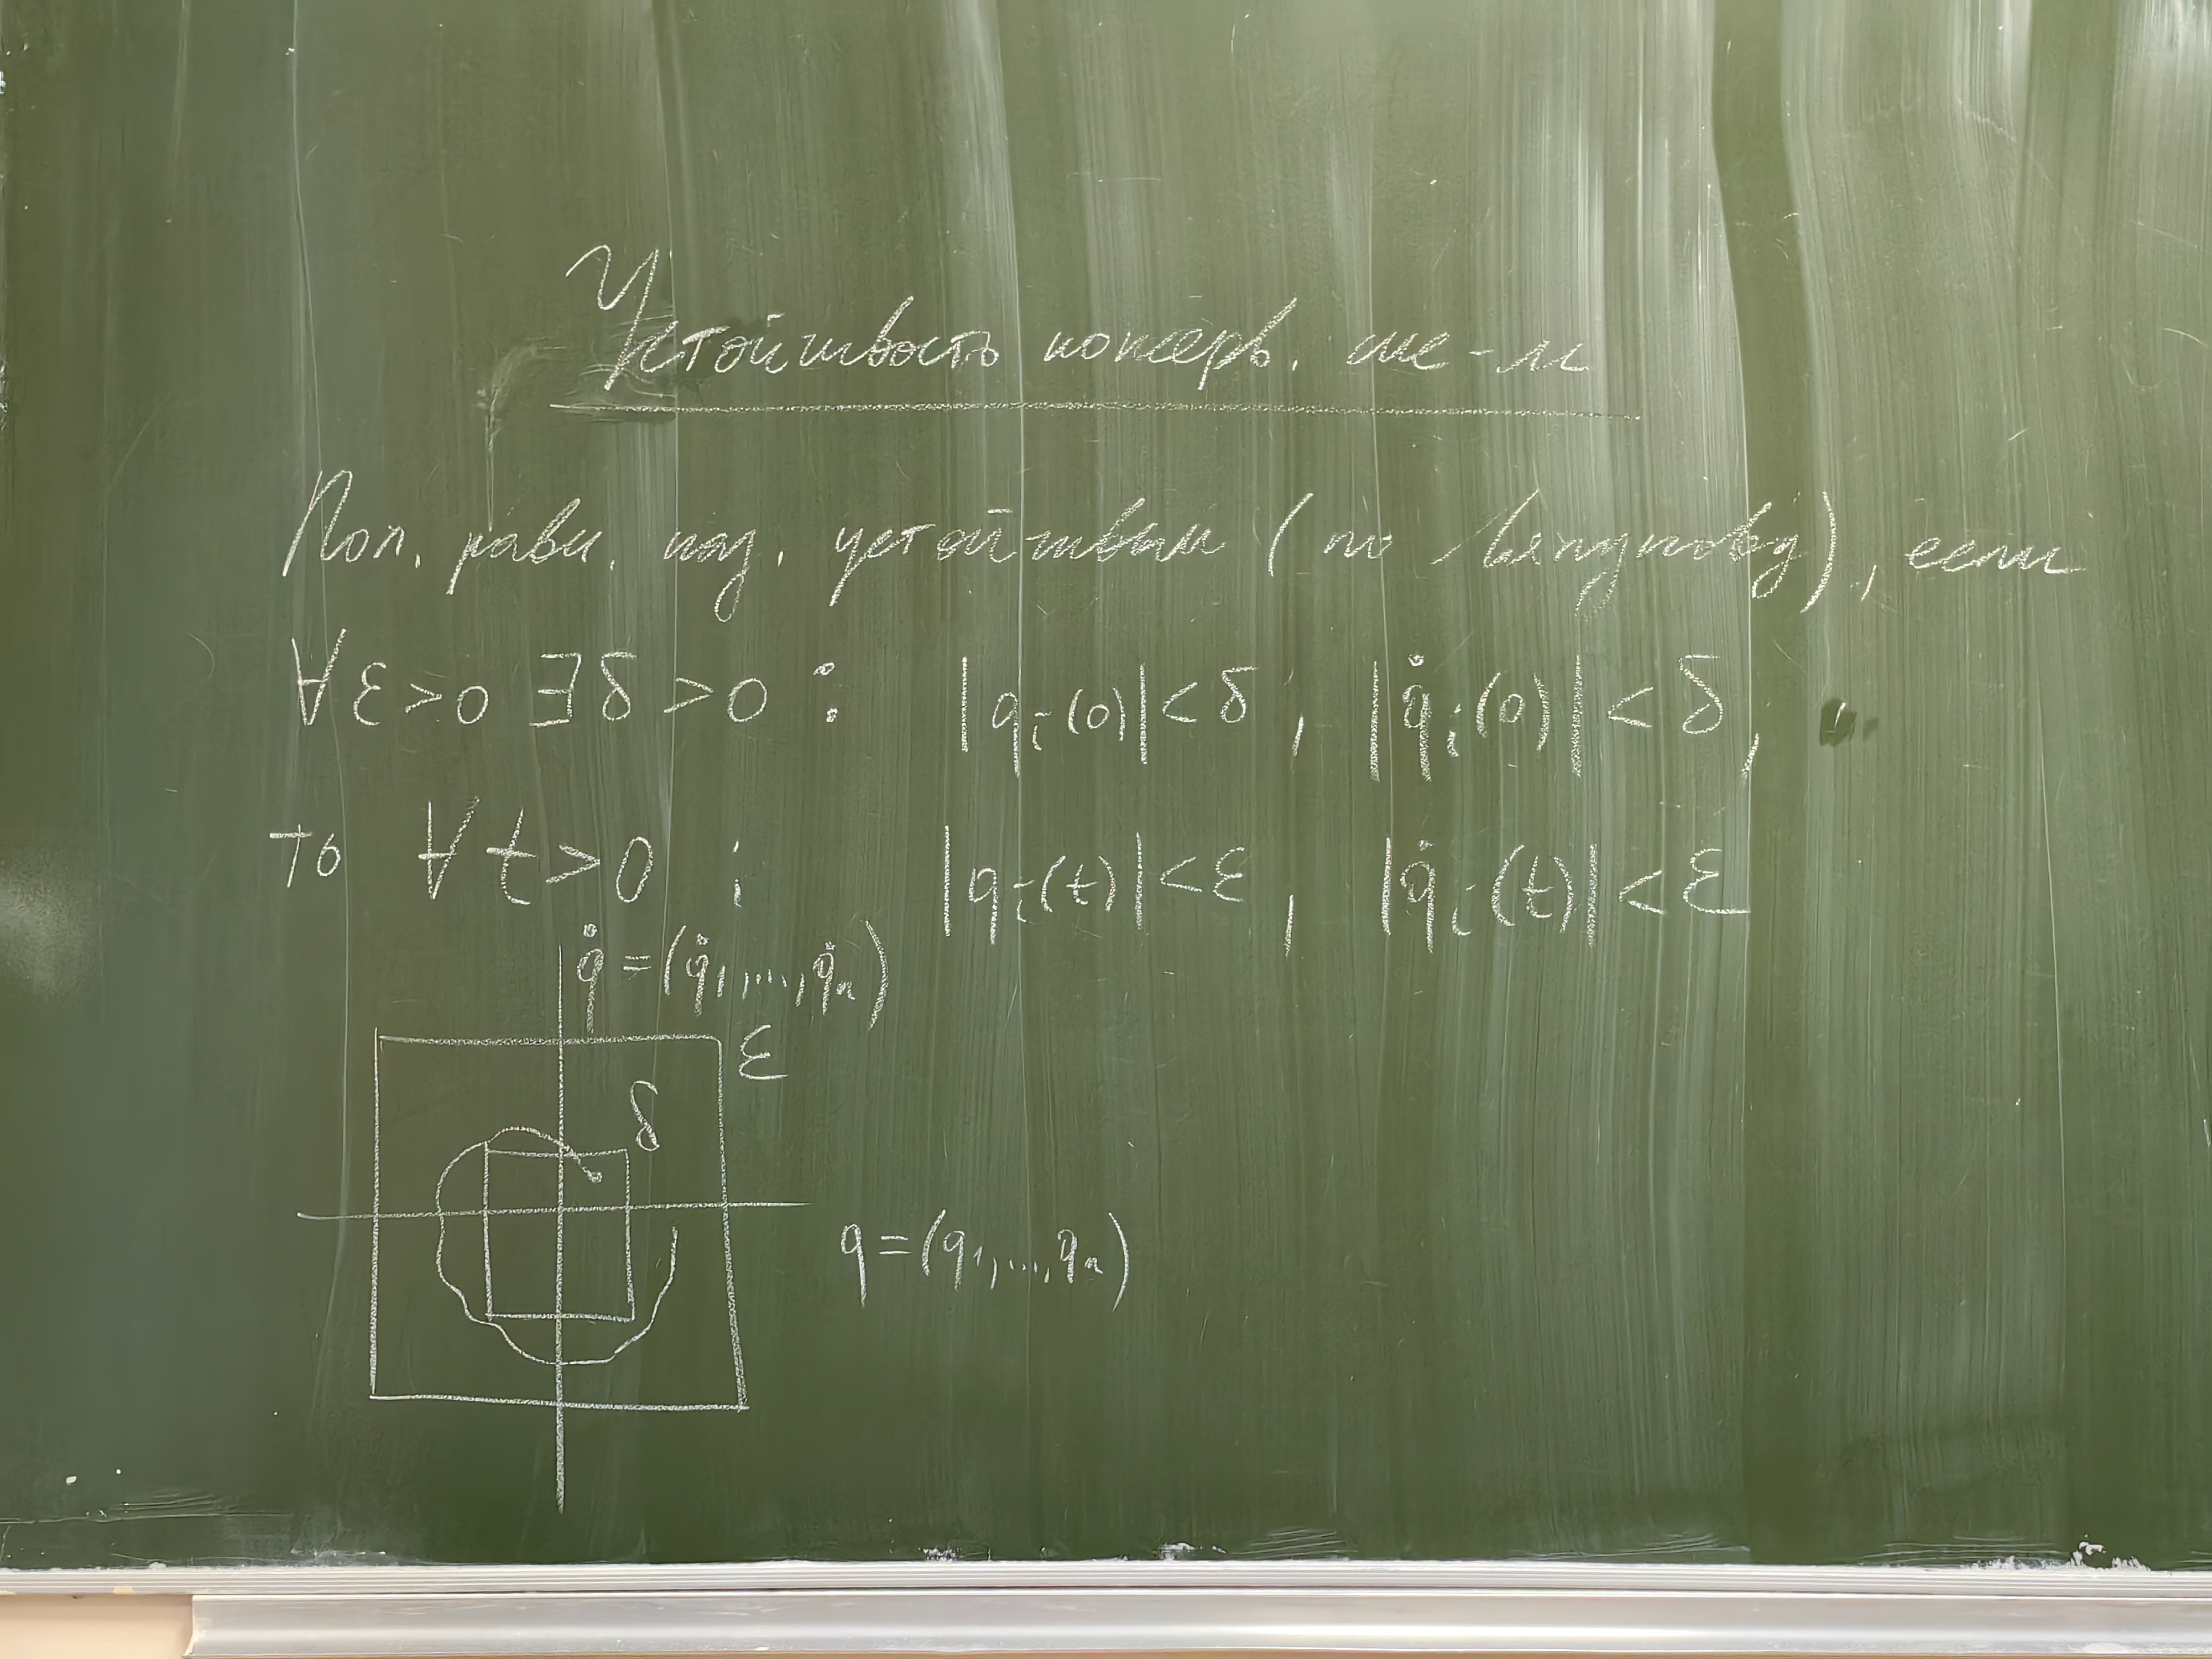 Устойчивость консерв. сис-м
Пол. равн. наз. устойчивым (по Ляпунову), если
∀ε>0 ∃δ>0 : |qᵢ(0)|<δ, |q̇ᵢ(0)|<δ,
то ∀t>0 : |qᵢ(t)|<ε, |q̇ᵢ(t)|<ε
q̇=(q̇₁,...,q̇ₙ)
ε
δ
q=(q₁,...,qₙ)